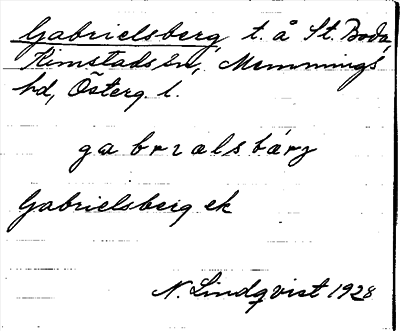 Gabrielsberg, t. å St. Boda,
Kimstads sn, Memmings
hd, Österg. l.
gabrɪəlsbärj
Gabrielsberg ek
N. Lindqvist 1928